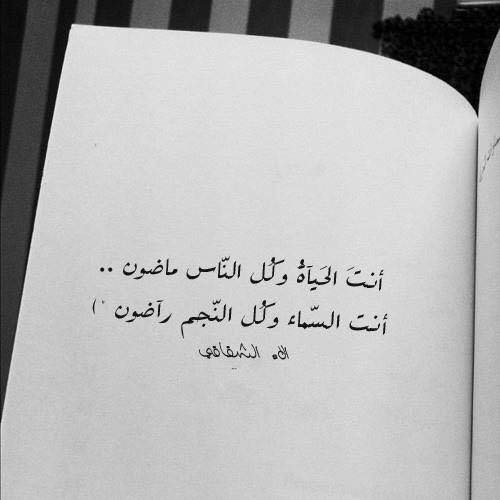 أنتَ الحَيآةُ وكُل النّاس ماضون ..
أنت السّماء وكُل النّجم رآضون ˚)
الشقاقي